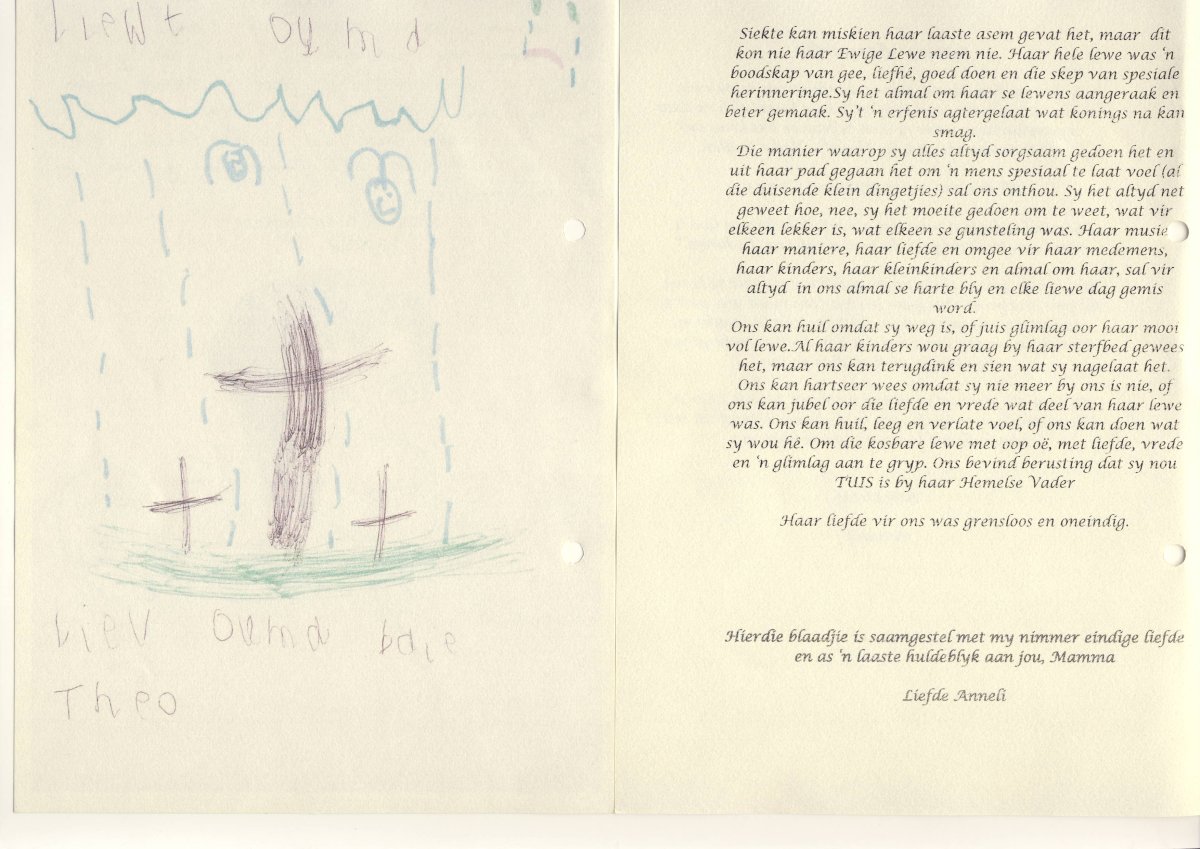 Liewt Ouma
Liev Ouma baie
Theo
Siekte kan miskien haar laaste asem gevat het, maar dit
kon nie haar Ewige Lewe neem nie. Haar hele lewe was 'n
boodskap van gee, liefhê, goed doen en die skep van spesiale
herinneringe.Sy het almal om haar se lewens aangeraak en
beter gemaak. Sy't 'n erfenis agtergelaat wat konings na kan
smag.
Die manier waarop sy alles altyd sorgsaam gedoen het en
uit haar pad gegaan het om 'n mens spesiaal te laat voel (al
die duisende klein dingetjies) sal ons onthou. Sy het altyd net
geweet hoe, nee, sy het moeite gedoen om te weet, wat vir
elkeen lekker is, wat elkeen se gunsteling was. Haar musie
haar maniere, haar liefde en omgee vir haar medemens,
haar kinders, haar kleinkinders en almal om haar, sal vir
altyd in ons almal se harte bly en elke liewe dag gemis
word.
Ons kan huil omdat sy weg is, of juis glimlag oor haar mooi
vol lewe.Al haar kinders wou graag by haar sterfbed gewees
het, maar ons kan terugdink en sien wat sy nagelaat het.
Ons kan hartseer wees omdat sy nie meer by ons is nie, of
ons kan jubel oor die liefde en vrede wat deel van haar lewe
was. Ons kan huil, leeg en verlate voel, of ons kan doen wat
sy wou hê. Om die kosbare lewe met oop oë, met liefde, vrede
en 'n glimlag aan te gryp. Ons bevind berusting dat sy nou
TUIS is by haar Hemelse Vader
Haar liefde vir ons was grensloos en oneindig.
Hierdie blaadjie is saamgestel met my nimmer eindige liefde
en as 'n laaste huldeblyk aan jou, Mamma
Liefde Anneli